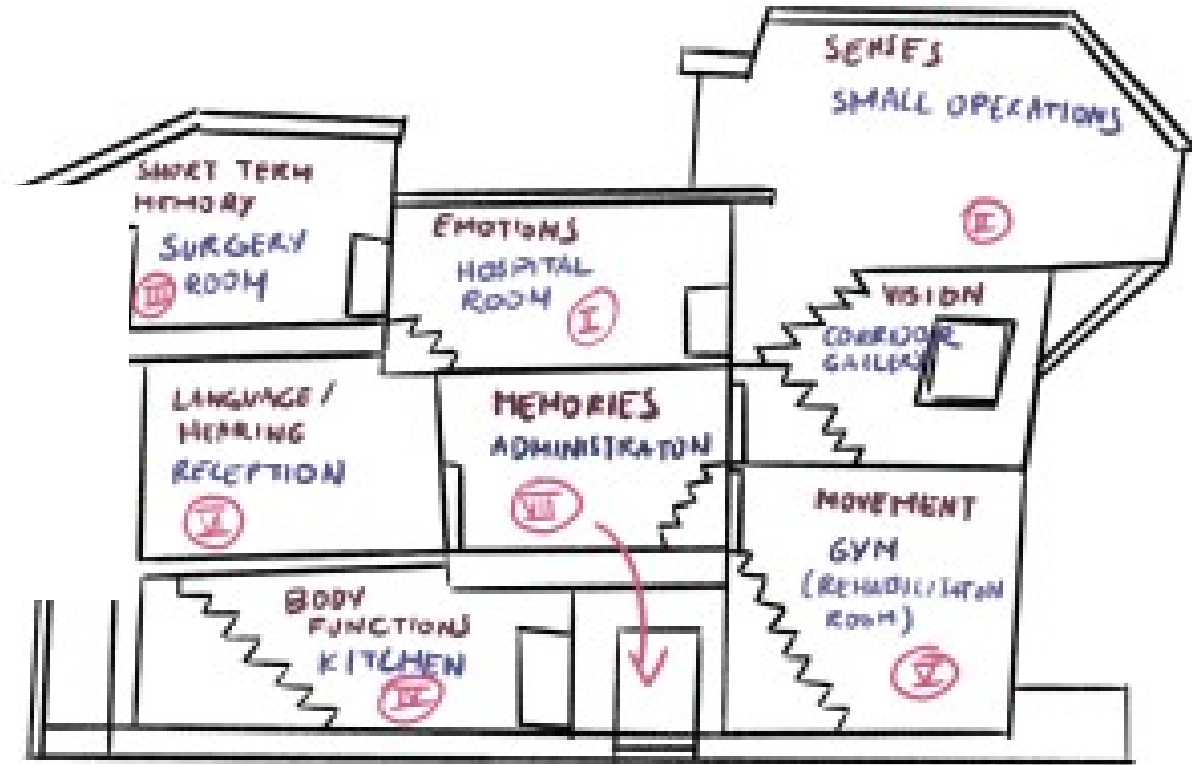 SENSES
SMALL OPERATIONS
II
SHORT TERM
MEMORY
SURGERY
ROOM
III
EMOTIONS
HOSPITAL
ROOM
I
VISION
CORRIDOR
GALLERY
LANGUAGE /
HEARING
RECEPTION
MEMORIES
ADMINISTRATON
VII
MOVEMENT
GYM
ROOM)
V
BODY
FUNCTIONS
KITCHEN
IV